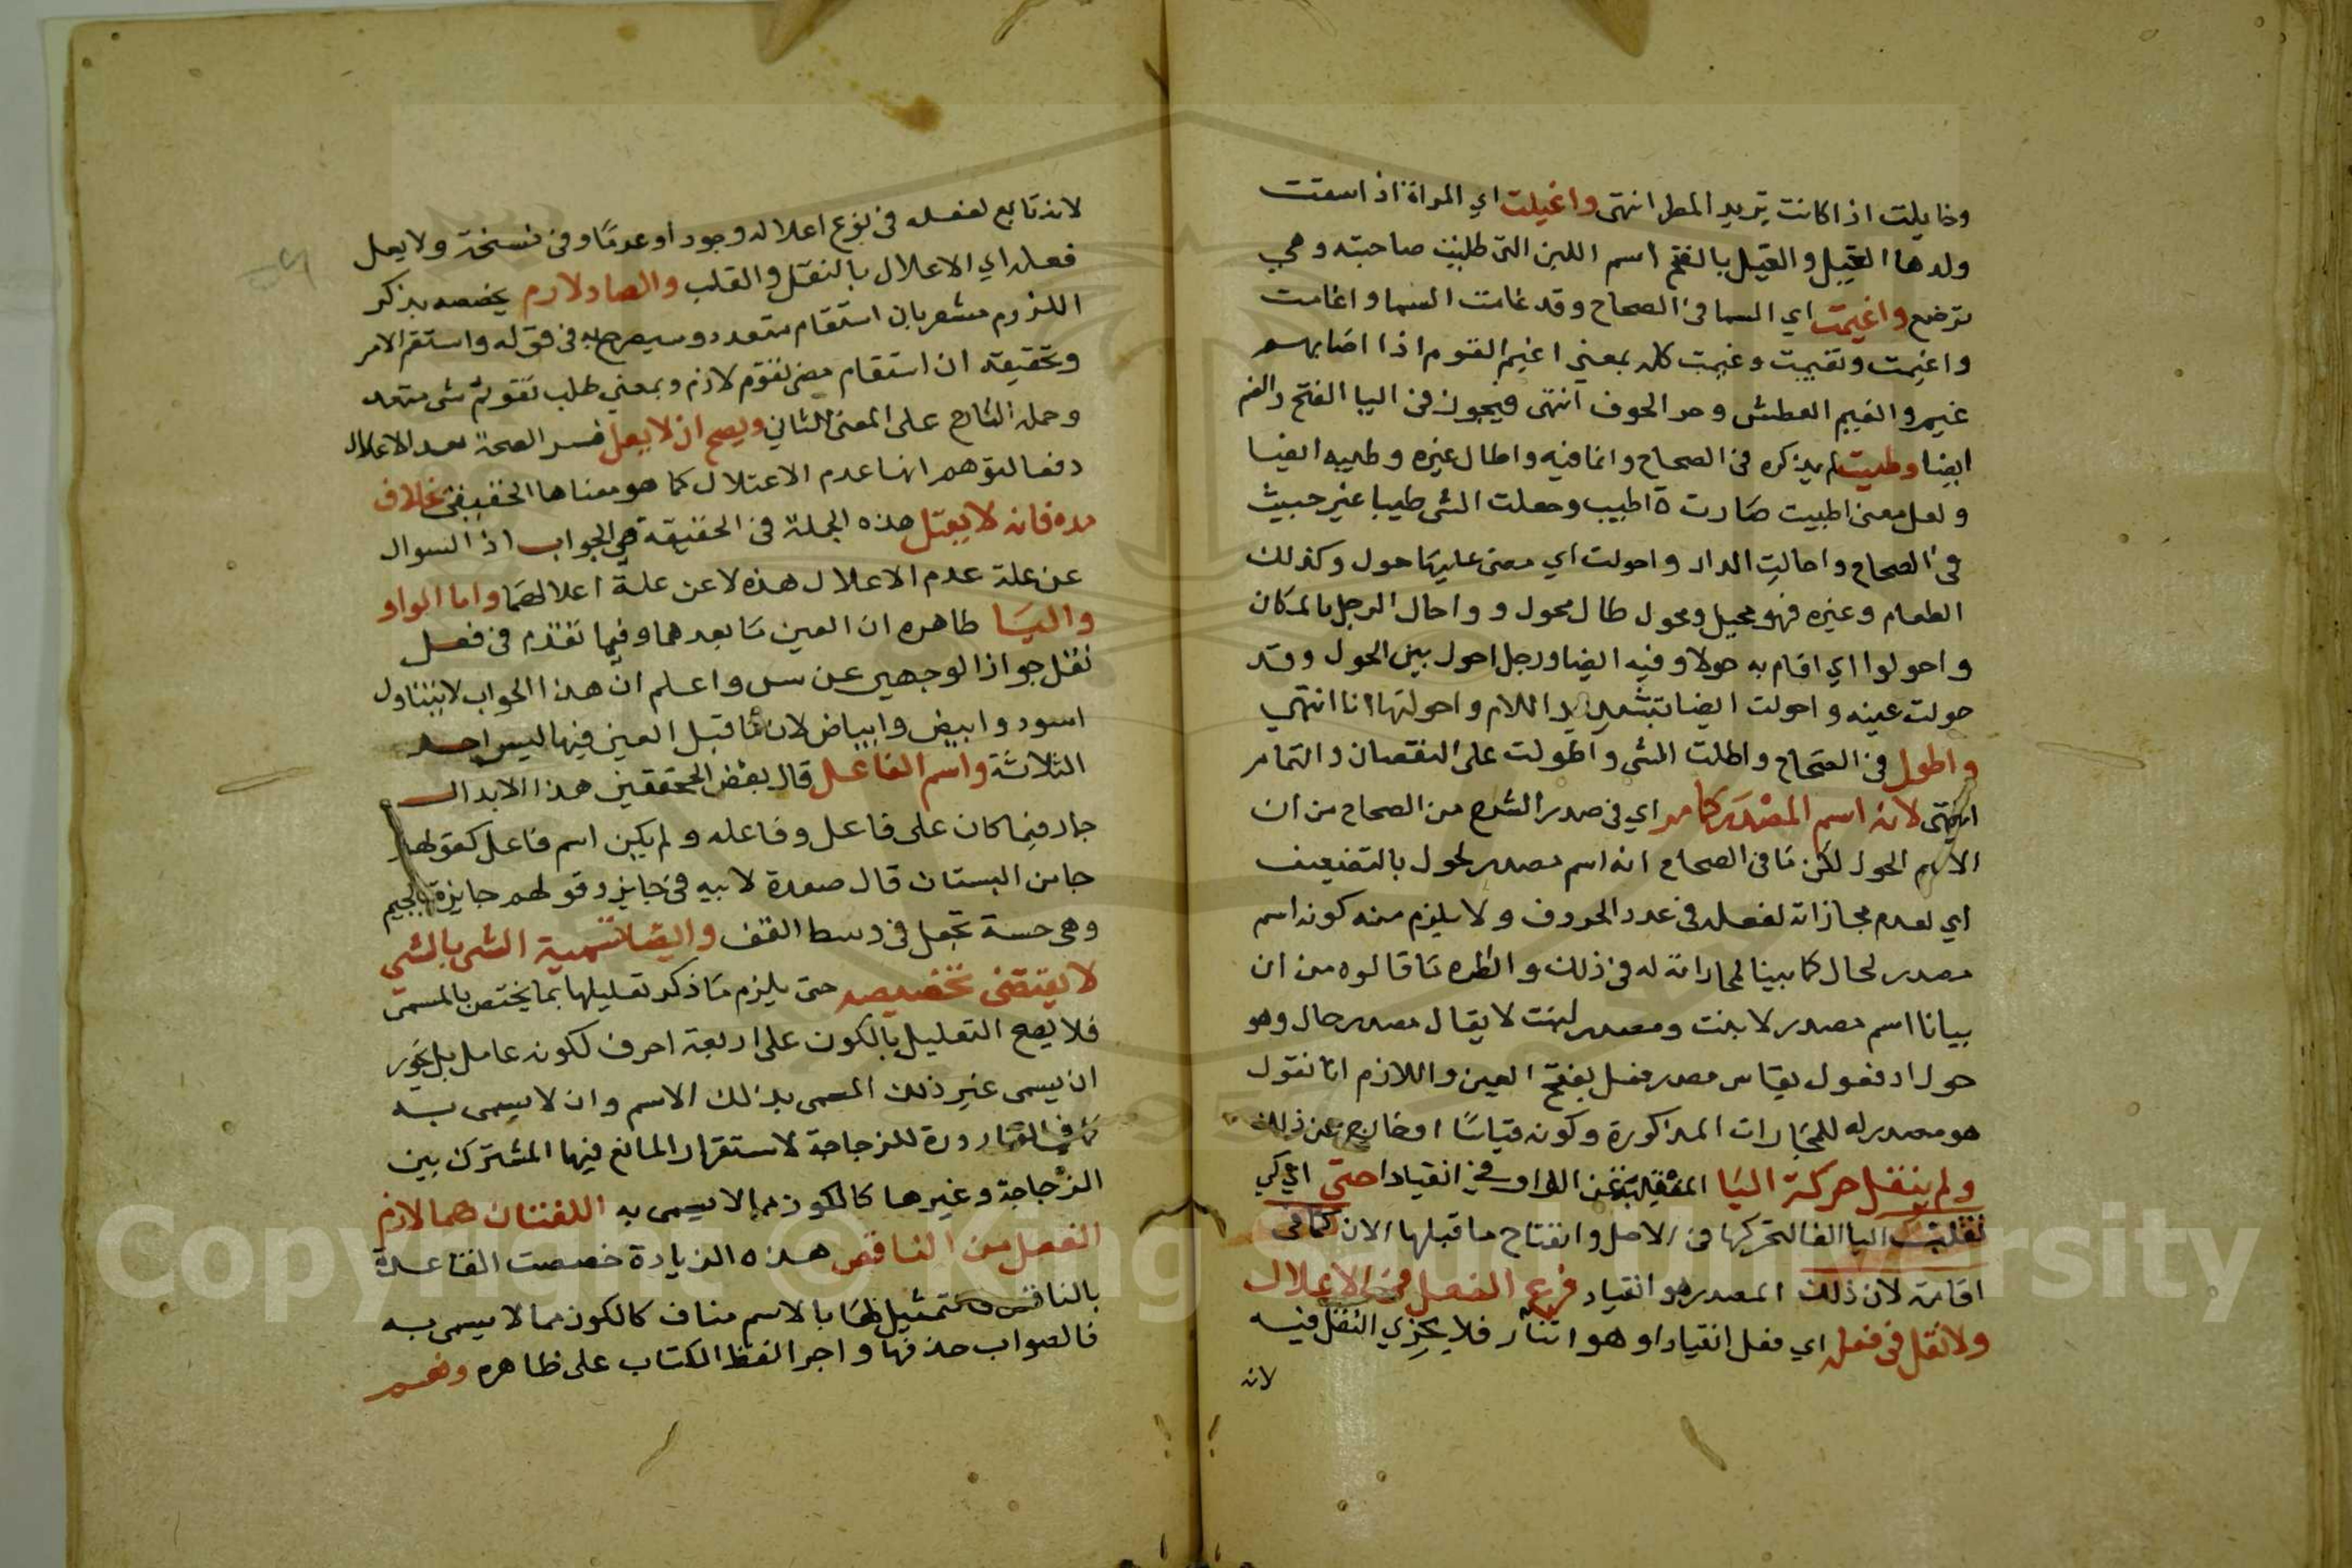 وخايلت اذا كانت تريد المطر انتهى واغيلت اي المراة اذ اسقت
ولدها الغيل والغيل بالفتح اسم اللبن التي طلبت صاحبته وهي
ترضع واغيمت اي السما في الصحاح وقد غامت السما واغامت
واغيمت وتغيمت وغيمت كله بمعني اغيم القوم اذا اصابهم
غيم والغيم العطش وحر الجوف انتهى فيجوز في اليا الفتح والضم
ايضا وطيبت لم يذكره في الصحاح وانما فيه واطال غيره وطيبه ايضا
ولعل معنى اطيبت صارت ة اطيب وجعلت الشى طيبا غير خبيث
في الصحاح واحالت الدار واحولت اي مضى عليها حول وكذلك
الطعام وغيره فهو محيل ومحول طال محول و واحال الرجل بالمكان
واحولوا اي اقام به حولا وفيه ايضا ورجل احول بين الحول وقد
حولت عينه واحولت ايضا بتشديد اللام واحولتها انا انتهي
واطول في الصحاح واطلت الشى واطولت على النقصان والتمام
انتهى لانه اسم المصدر كما مر اي في صدر الشرح من الصحاح من ان
الاسم الحول لكن ما في الصحاح انه اسم مصدر لحول بالتضعيف
اي لعدم مجازاته لفعله في عدد الحروف ولا يلزم منه كونه اسم
مصدر لحال كما بينا لمجاراته له في ذلك وانظره ما قالوه من ان
بيانا اسم مصدر لابنت ومصدر لبنت لا يقال مصدر حال وهو
حول اذ فعول يقاس مصدر فعل بفتح العين واللازم انا نقول
هو مصدر له للمجارات المذكورة وكونه قياسا او خارج عن ذلك
ولم ينقل حركة اليا المنقلبة عن الواو في انقيادا حتى اي كي
تقلبت اليا الفا لتحركها في الاصل وانفتاح ما قبلها الان كما في
اقامة لان ذلك المصدر هو انقياد فرع الفعل في الاعلال
ولا نقل في فعله اي فعل انقيادا وهو انقاد فلا يجزي النقل فيه
لانه
لانه تابع لفعله في نوع اعلاله وجودا وعدما وفي نسخة ولا يعل
فعله اي الاعلال بالنقل والقلب والصاد لازم يخصصه بذكر
اللزوم مشعر بان استقام متعدد وسيصرح به في قوله واستقم الامر
وتحقيقه ان استقام معنى تقوم لازم وبمعني طلب تقويم شى متعد
وحمله الشارح على المعنى الثاني ويصح ان لا يعل فسر الصحة بعدم الاعلال
دفعا لتوهم انها عدم الاعتلال كما هو معناها الحقيقي بخلاف
مده فانه لا يعتل هذه الجملة في الحقيقة هي الجواب اذ السوال
عن علة عدم الاعلال هذه لا عن علة اعلالهما واما الواو
واليا ظاهره ان العين ما بعدهما وفيما تقدم في فعل
نقل جواز الوجهين عن س واعلم ان هذا الجواب لا يتناول
اسود وابيض وابياض لان ما قبل العين فيها ليس احد
الثلاثة واسم الفاعل قال بعض المحققين هذا الابدال
جار فيما كان على فاعل وفاعله ولم يكن اسم فاعل كقولهم
جاىن البستان قال صعدة لابيه في جايز وقولهم جايزة بالجيم
وهي خشبة تجعل في وسط السقف وايضا تسمية الشي بالشي
لا يقتضى تخصيصه حتى يلزم ما ذكر تعليلها بما يختص بالمسمى
فلا يصح التعليل بالكون على اربعة احرف لكونه عامل بل يجوز
ان يسمى غير ذلك المسمى بذلك الاسم وان لا يسمى به
كما في القارورة للزجاجة لاستقرار المائع فيها المشترك بين
الزجاجة وغيرها كالكوز مما لا يسمى به اللفتان هما لازم
الفعل من الناقص هذه الزيادة خصصت الفاعلة
بالناقص وتمثيلها بالاسم مناف كالكوز مما لا يسمى به
فالصواب حذفها واجرا لفظ الكتاب على ظاهره وفسر
Copyright © King Saud University